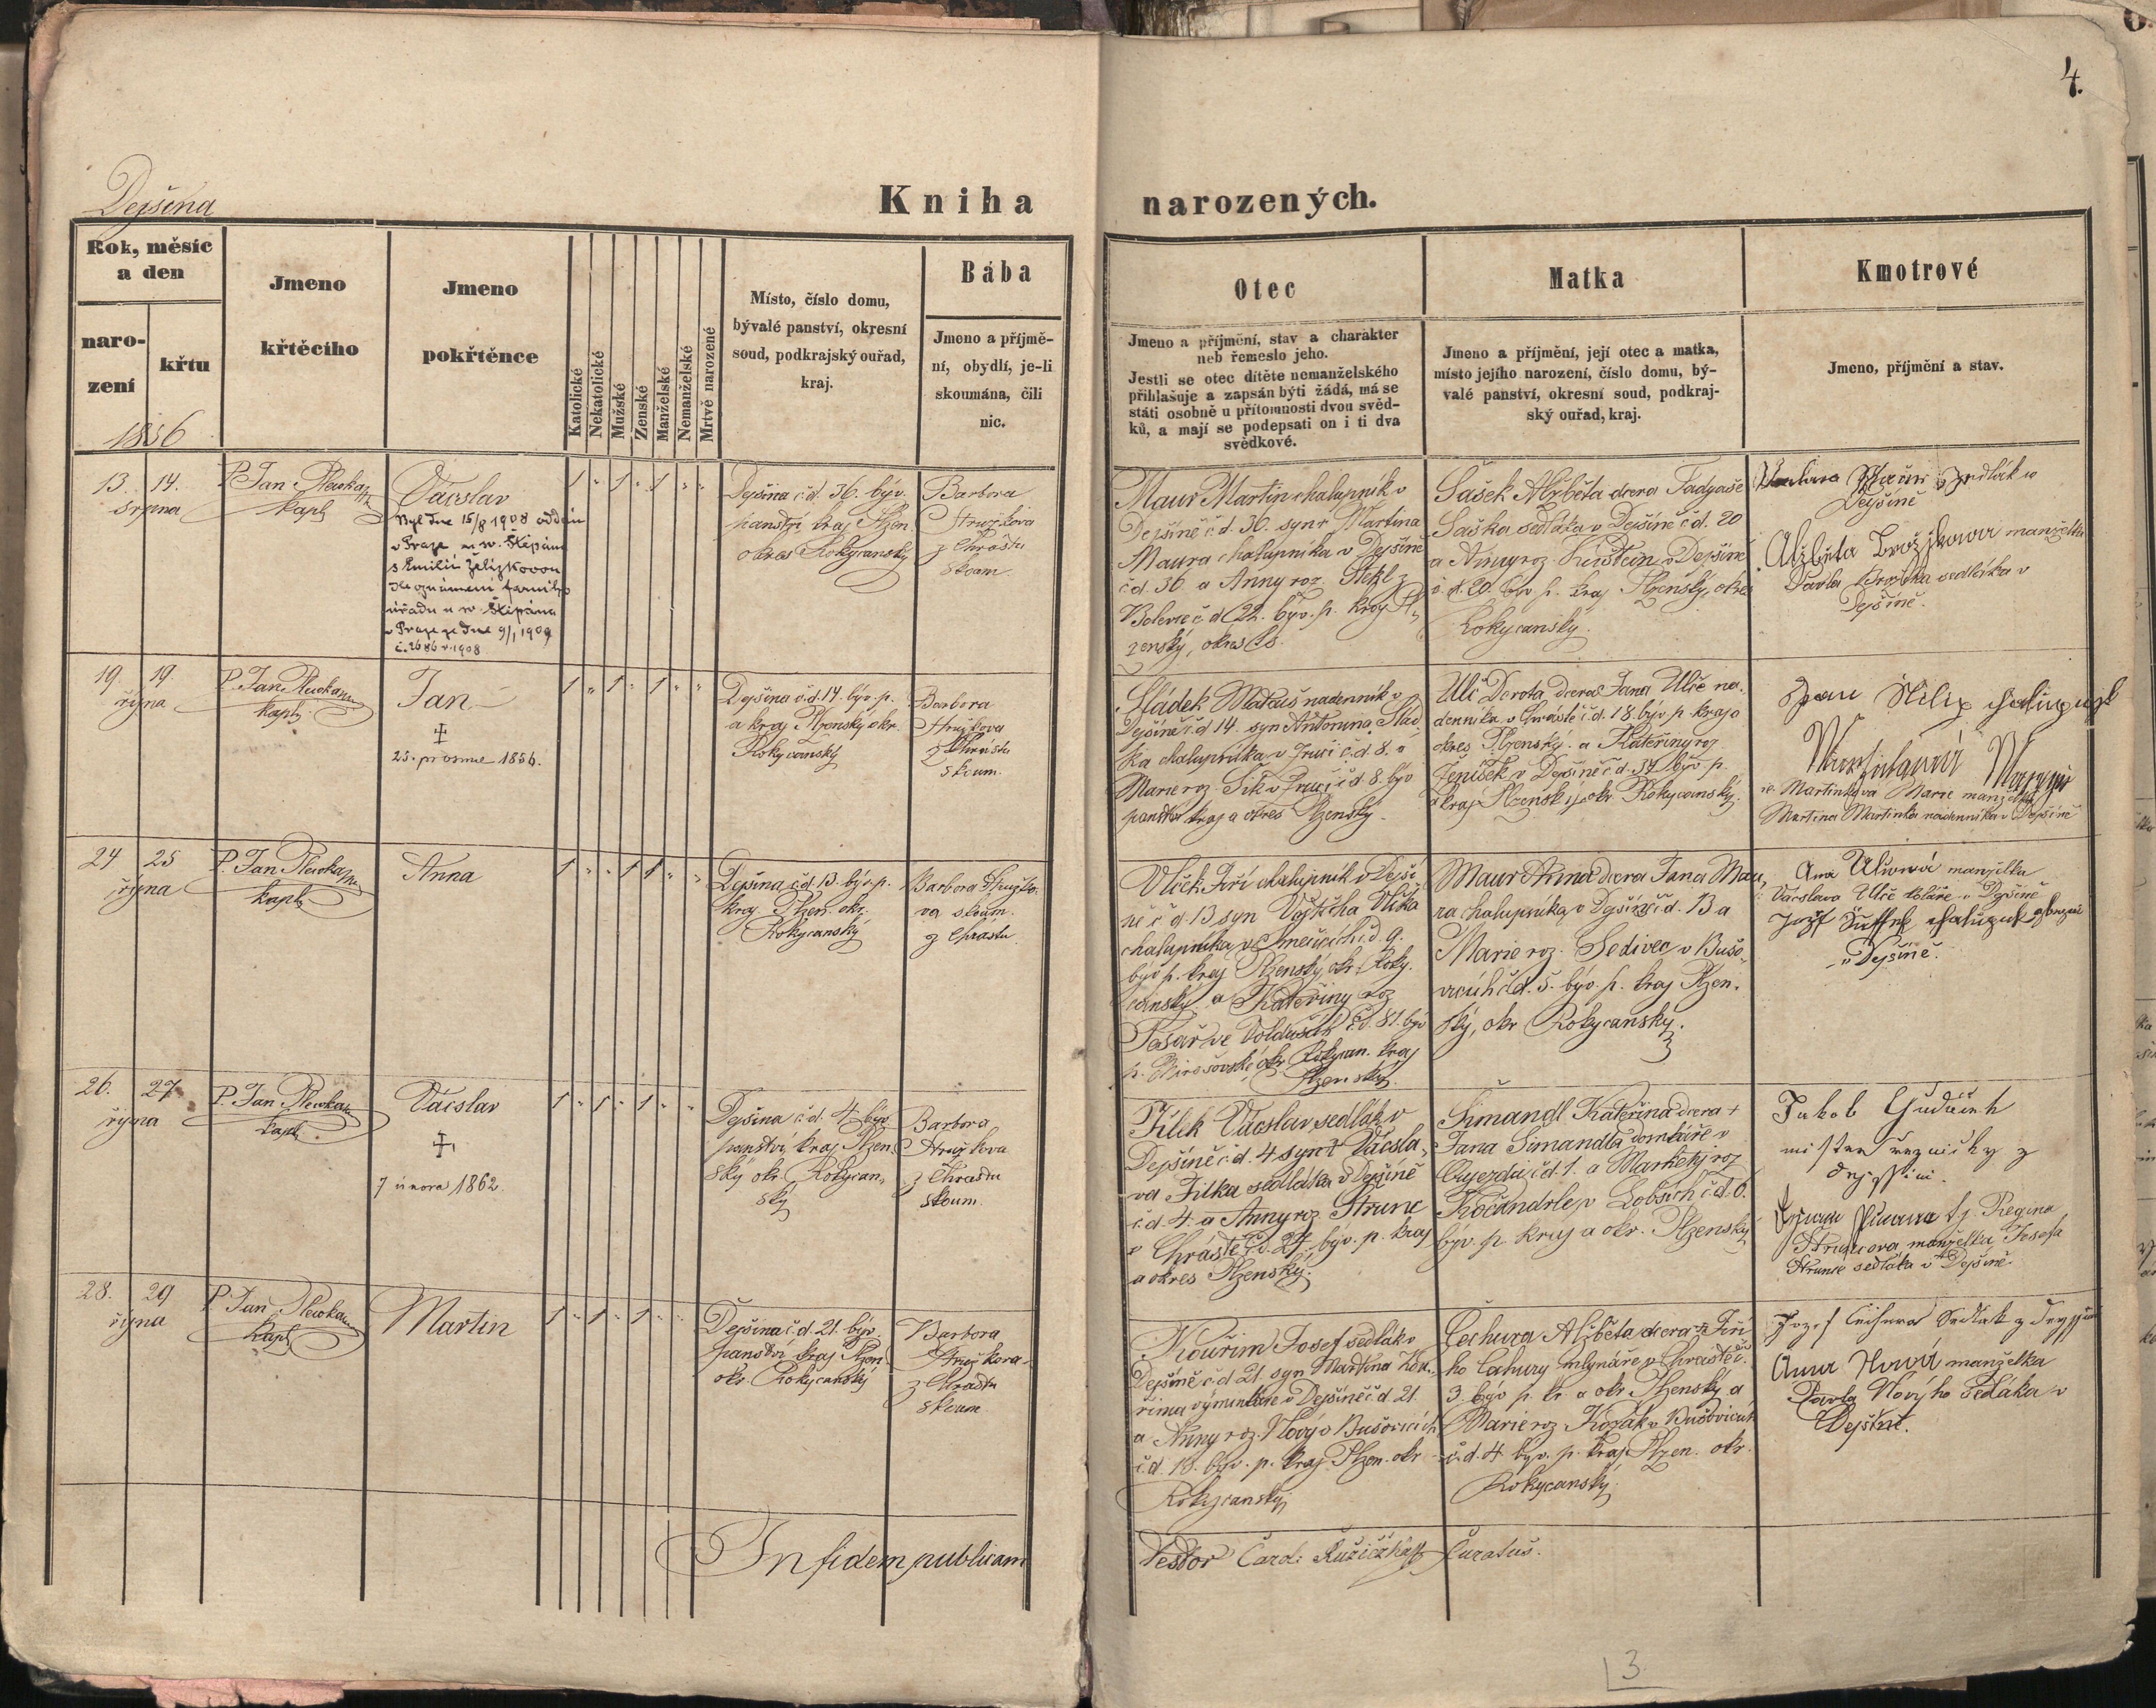 4.
Dejšina
Kniha narozených.
Rok, měsíc
a den
naro-
zení
křtu
1856
Jmeno
křtěcího
Jmeno
pokřtěnce
Katolické
Nekatolické
Mužské
Ženské
Manželské
Nemanželské
Mrtvě narozené
Místo, číslo domu,
bývalé panství, okresní
soud, podkrajský ouřad,
kraj.
Bába
Jmeno a příjmě-
ní, obydlí, je-li
skoumána, čili
nic.
Otec
Jmeno a příjmění, stav a charakter
neb řemeslo jeho.
Jestli se otec dítěte nemanželského
přihlašuje a zapsán býti žádá, má se
státi osobně u přítomnosti dvou svěd-
ků, a mají se podepsati on i ti dva
svědkové.
Matka
Jmeno a příjmění, její otec a matka,
místo jejího narození, číslo domu, bý-
valé panství, okresní soud, podkraj-
ský ouřad, kraj.
Kmotrové
Jmeno, příjmění a stav.
13. 14.
srpna
P. Jan
kapl.
Vácslav
Byl dne 15/8 1908 oddán
v Praze u sv. Štěpána
s Emilií Želízkovou
dle oznámení farního
úřadu u sv. Štěpána
v Praze ze dne 9/1 1909
č. 2686 r. 1908
1 " 1 " 1 " "
Dejšina č.d. 36. býv.
panství, kraj Plzen.
okres Rokycanský
Barbora
z Chrástu
skoum.
Maur Martin chalupník v
Dejšině č.d. 36. syn Martina
Maura chalupníka v Dejšině
č.d. 36 a Anny roz.
č.d. 22. býv. p. kraj Pl-
zenský, okres
Sašek Alžběta dcera
Saška sedláka v Dejšině č.d. 20
a Anny roz. v Dejšině
č.d. 20. býv. p. kraj Plzenský, okres
Rokycanský.
sedlák v
Dejšině
Alžběta manželka
Pavla Brožíka sedláka v
Dejšině.
19. 19.
října
P. Jan
kapl.
Jan
25. prosince 1856.
1 " 1 " 1 " "
Dejšina č.d. 14. býv. p.
a kraj Plzenský okr.
Rokycanský
Barbora
z Chrástu
skoum.
Sládek Matouš nadenník v
Dejšině č.d. 14. syn Antonína Slád-
ka chalupníka v Druči č.d. 8. a
Marie roz. v Druči č.d. 8. býv.
panství kraj a okres Plzenský.
Ulč Dorota dcera Jana Ulče na-
denníka v Chrástě č.d. 18. býv. p. kraj a
okres Plzenský. a Kateřiny roz.
Ženíšek v Dejšině č.d. býv. p.
a kraj Plzenský okr. Rokycanský.
Jan Filip chalupník
Martínková Marie manželka
Martina Martínka nádenníka v Dejšině
24 25
října
P. Jan
kapl.
Anna
1 " " 1 1 " "
Dejšina č.d. 13. býv. p.
kraj Plzen. okr.
Rokycanský
Barbora
va skoum.
z Chrástu
Vlček Jiří chalupník v Dejši-
ně č.d. 13 syn Vojtěcha Vlčka
chalupníka v č.d. 9.
býv. p. kraj Plzenský, okr. Roky-
canský a Kateřiny roz.
ve č.d. 81. býv.
p. Mirošovské okr. Rokycan. kraj
Plzenský.
Maur Anna dcera Jana Mau-
ra chalupníka v Dejšině č.d. 13 a
Marie roz. Šedivec v Bušo-
vicích č.d. 5. býv. p. kraj Plzen-
ský, okr. Rokycanský.
Ana Ulčová manželka
Vácslava Ulče koláře v Dejšině
Jozef chalupník
v Dejšině.
26. 27.
října
P. Jan
kapl.
Vácslav
7 února 1862.
1 " 1 " 1 " "
Dejšina č.d. 4. býv.
panství, kraj Plzen-
ský okr. Rokycan-
ský
Barbora
z Chrástu
skoum.
Jílek Vácslav sedlák v
Dejšině č.d. 4 syn Vácsla-
va Jílka sedláka v Dejšině
č.d. 4. a Anny roz. Strunc
z Chrástě č.d. 27. býv. p. kraj
a okres Plzenský.
Šimandl Kateřina dcera
Jana Šimandla domkáře v
Oujezdu č.d. 1. a Markéty roz.
Kočandrle z Lobších č.d. 6.
býv. p. kraj a okr. Plzenský
Jakob
mister řeznický z
Dejssini.
tj. Regina
Struncova manželka Josefa
Strunce sedláka v Dejšině.
28. 29
října
P. Jan
kapl.
Martin
1 " 1 " 1 " "
Dejšina č.d. 21. býv.
panství kraj Plzen.
okr. Rokycanský
Barbora
z Chrástu
skoum.
Kouřim Josef sedlák v
Dejšině č.d. 21. syn Martina Kou-
řima výminkáře v Dejšině č.d. 21.
a Anny roz. Nový v Bušovicích
č.d. 18. býv. p. kraj Plzen. okr.
Rokycanský
Čechura Alžběta dcera Jiří-
ho Čechury mlynáře v Chrástě č.
3. býv. p. kr. a okr. Plzenský a
Marie roz. Kozák v Bušovicích
č.d. 4. býv. p. kraj Plzen. okr.
Rokycanský.
Jozef Čechura Sedlak z
Anna Nová manželka
Pavla Nového sedláka v
Dejšině.
In fidem publicam
Testor Carol: Růžiczka Curatus.
3